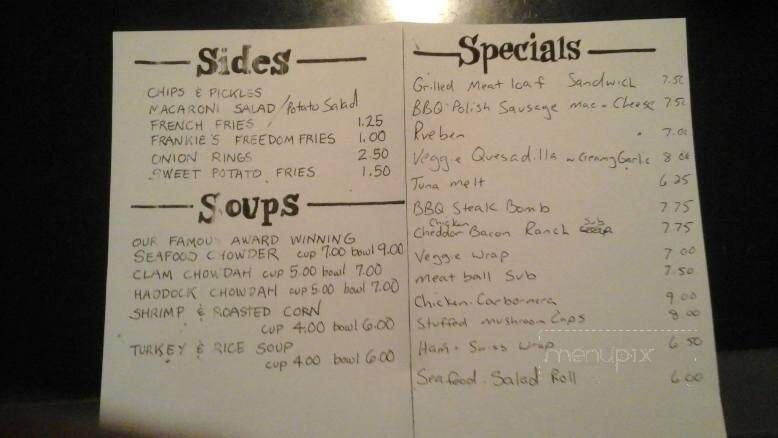 Sides
CHIPS & PICKLES
MACARONI SALAD / Potato Salad
FRENCH FRIES 1.25
FRANKIE'S FREEDOM FRIES 1.00
ONION RINGS 2.50
SWEET POTATO FRIES 1.50
Soups
OUR FAMOUS AWARD WINNING
SEAFOOD CHOWDER cup 7.00 bowl 9.00
CLAM CHOWDAH cup 5.00 bowl 7.00
HADDOCK CHOWDAH cup 5.00 bowl 7.00
SHRIMP & ROASTED CORN
cup 4.00 bowl 6.00
TURKEY & RICE SOUP
cup 4.00 bowl 6.00
Specials
Grilled Meat loaf Sandwich 7.50
BBQ Polish Sausage mac + Cheese 7.50
Rueben 7.00
Veggie Quesadilla w Creamy Garlic 8.00
Tuna melt 6.25
BBQ Steak Bomb 7.75
Chicken Cheddar Bacon Ranch Sub 7.75
Veggie Wrap 7.00
meat ball Sub 7.50
Chicken Carbonnera 9.00
Stuffed mushroom Caps 8.00
Ham + Swiss Wrap 6.50
Seafood Salad Roll 6.00
menupix